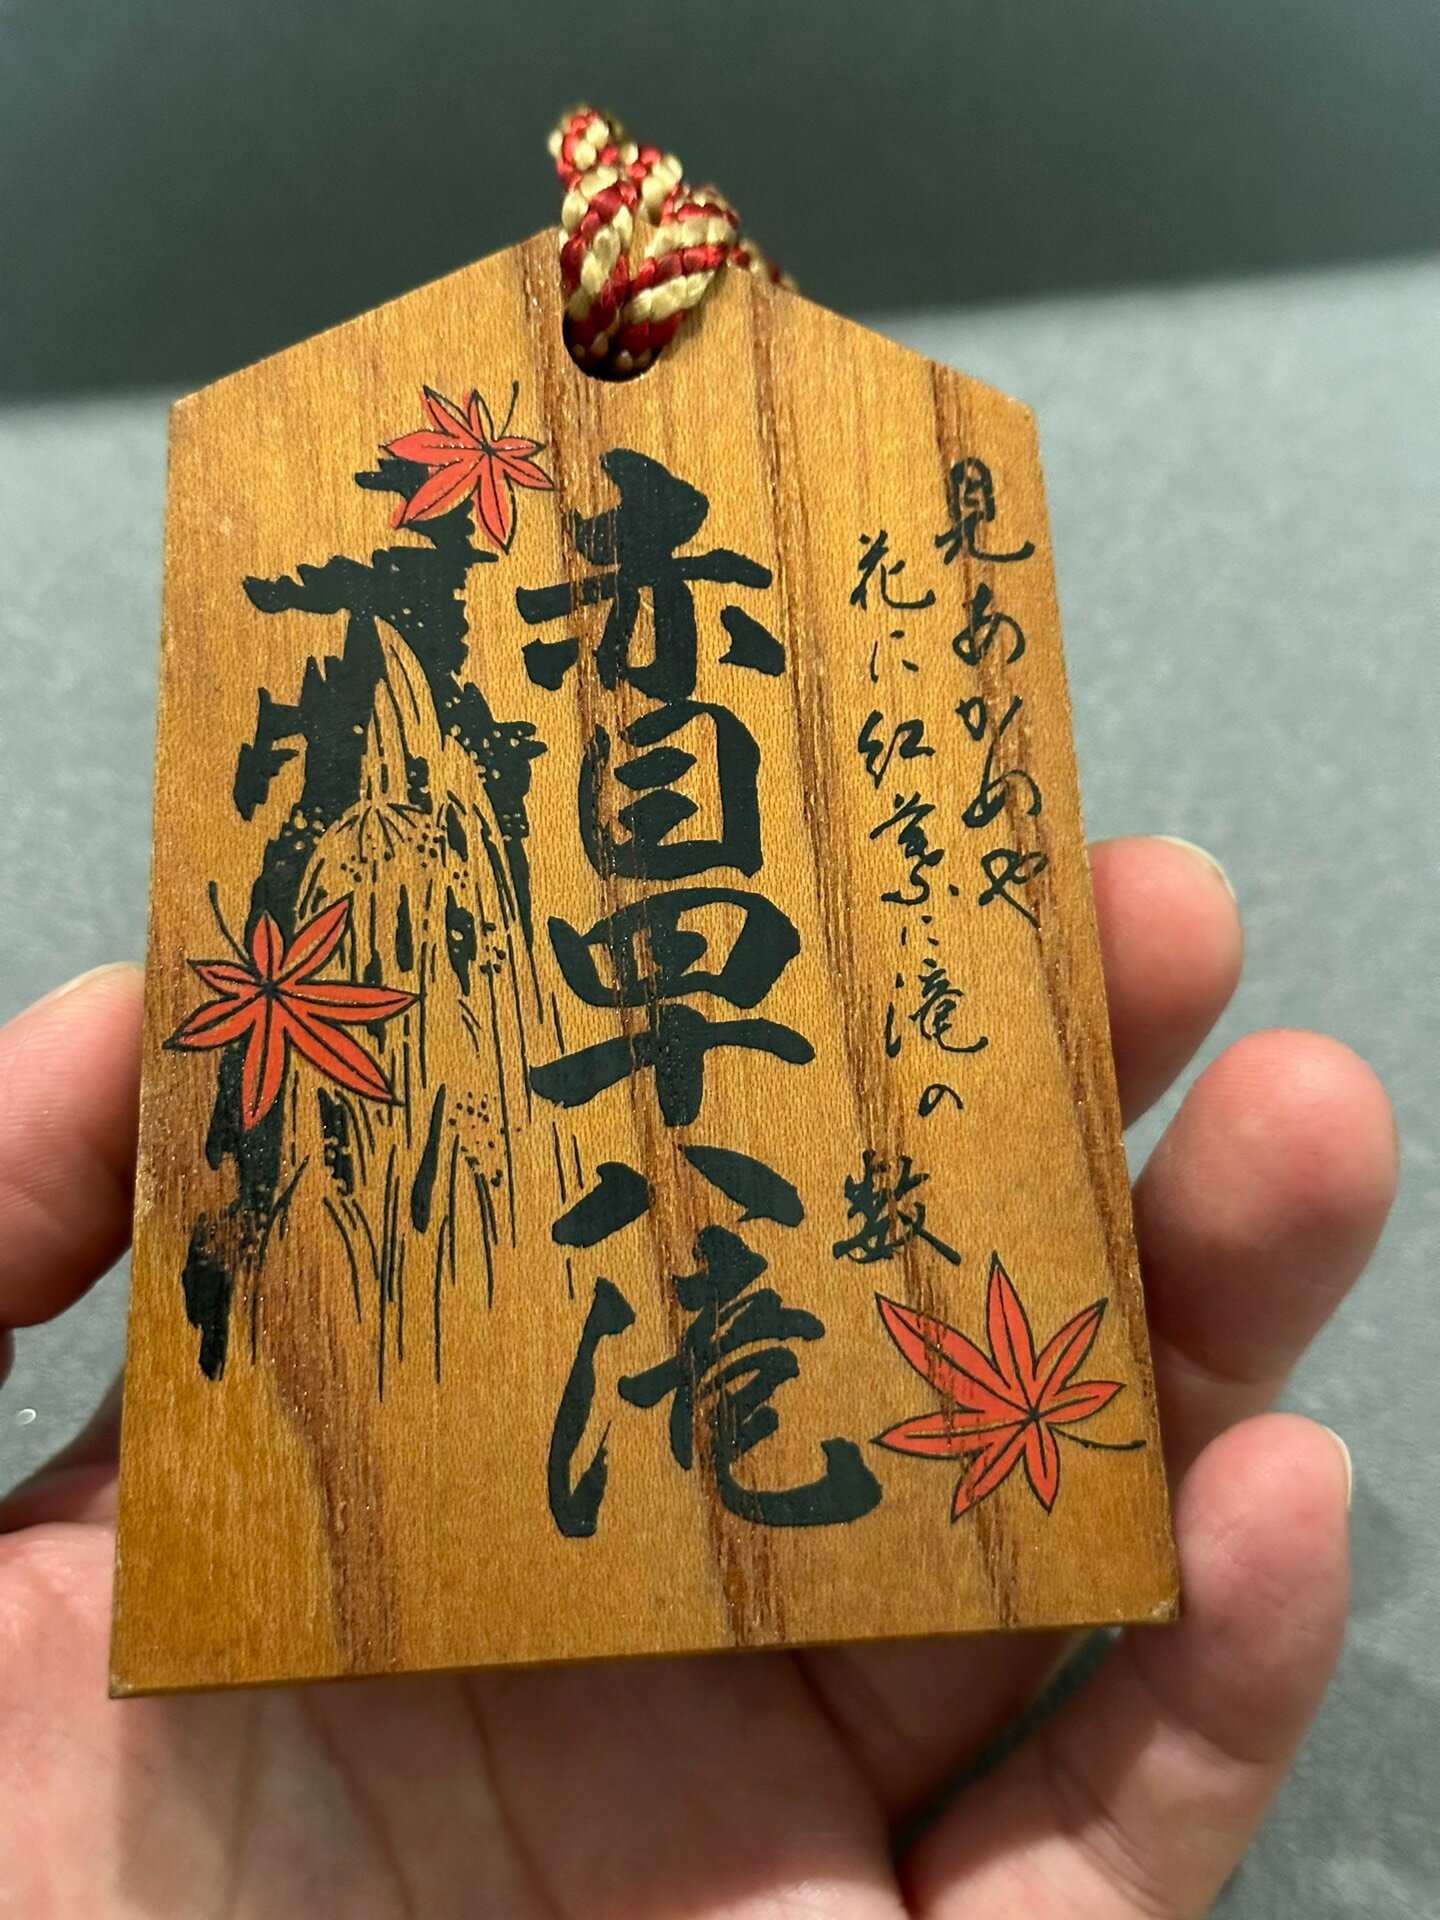 見あかめや
花に紅葉に滝の
数
赤目四十八滝